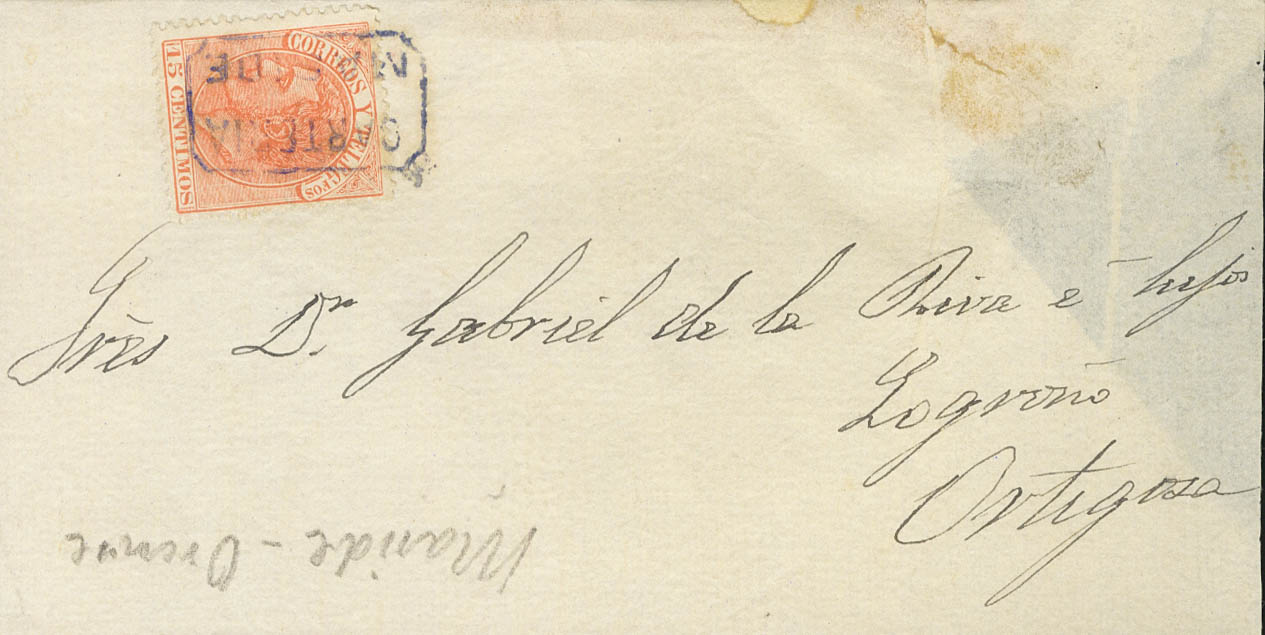 CORREOS Y TELEGFOS
15 CENTIMOS
CARTERIA
DE
Sres Dn. Gabriel de la Riva e hijos
Logroño
Ortigosa
Maside - Orense